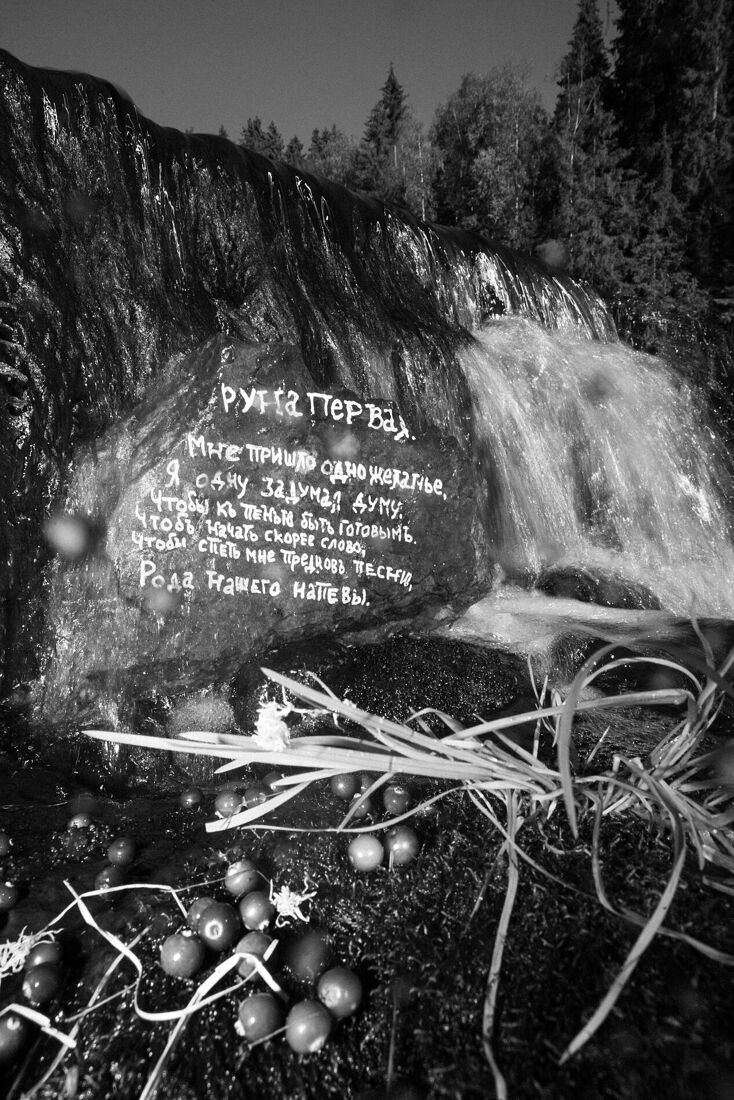 Рунапервая.
Мне пришло одно желанье,
Я одну задумал думу:
Чтобы къ пѣнью быть готовымъ.
Чтобъ начать скорее слово;
Чтобы спеть мне предковъ песни,
Рода нашего напевы.